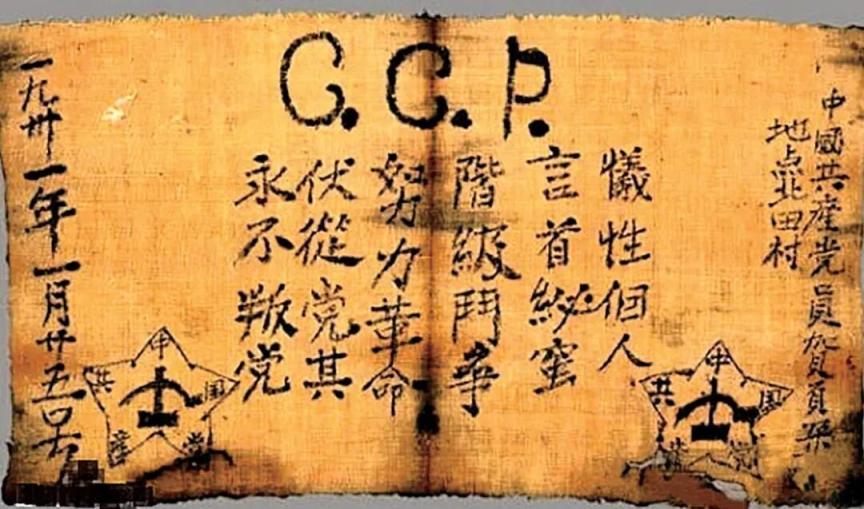 C.C.P.
中國共産党員賀頁朵
地点北田村
犠性個人
言首秘蜜
階級鬥争
努力革命
伏從党其
永不叛党
一九卅一年一月廿五
中国共産党
中国共産党